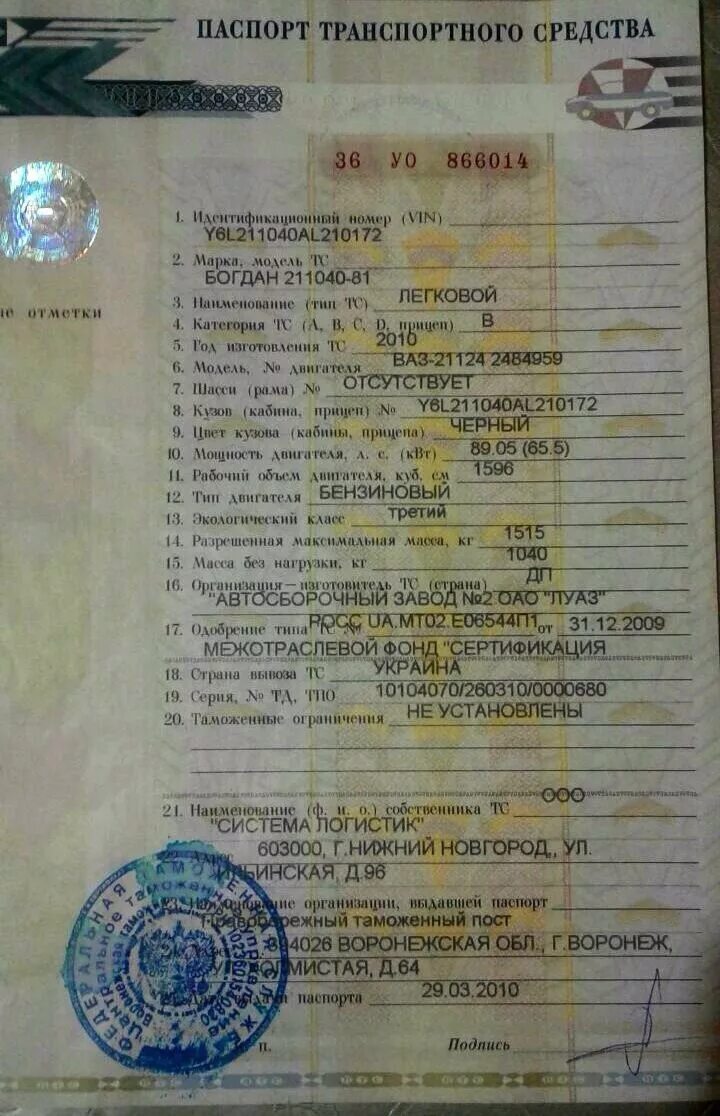 ПАСПОРТ ТРАНСПОРТНОГО СРЕДСТВА
36 УО 866014
отметки
1. Идентификационный номер (VIN)
Y6L211040AL210172
2. Марка, модель ТС
БОГДАН 211040-81
3. Наименование (тип ТС) ЛЕГКОВОЙ
4. Категория ТС (А, В, С, D, прицеп) В
5. Год изготовления ТС 2010
6. Модель, № двигателя ВАЗ-21124 2484959
7. Шасси (рама) № ОТСУТСТВУЕТ
8. Кузов (кабина, прицеп) № Y6L211040AL210172
9. Цвет кузова (кабины, прицепа) ЧЕРНЫЙ
10. Мощность двигателя, л. с. (кВт) 89.05 (65.5)
11. Рабочий объем двигателя, куб. см 1596
12. Тип двигателя БЕНЗИНОВЫЙ
13. Экологический класс третий
14. Разрешенная максимальная масса, кг 1515
15. Масса без нагрузки, кг 1040
16. Организация—изготовитель ТС (страна) ДП
"АВТОСБОРОЧНЫЙ ЗАВОД №2 ОАО "ЛУАЗ"
17. Одобрение типа ТС № РОСС UA.MT02.E06544П1 от 31.12.2009
МЕЖОТРАСЛЕВОЙ ФОНД "СЕРТИФИКАЦИЯ
18. Страна вывоза ТС УКРАИНА
19. Серия, № ТД, ТПО 10104070/260310/0000680
20. Таможенные ограничения НЕ УСТАНОВЛЕНЫ
21. Наименование (ф. и. о.) собственника ТС ООО
"СИСТЕМА ЛОГИСТИК"
603000, Г.НИЖНИЙ НОВГОРОД,, УЛ.
ИЛЬИНСКАЯ, Д.96
23. Наименование организации, выдавшей паспорт
Правобережный таможенный пост
394026 ВОРОНЕЖСКАЯ ОБЛ., Г.ВОРОНЕЖ,
Д.64
паспорта 29.03.2010
п. Подпись
ФЕДЕРАЛЬНАЯ ТАМОЖЕННАЯ СЛУЖБА